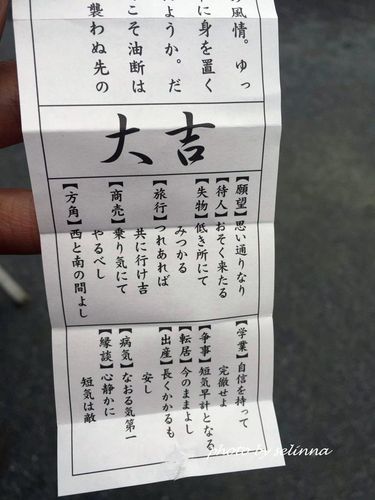 風情。ゆっ
に身を置く
ようか。だ
こそ油断は
襲わぬ先の
大吉
【願望】思い通りなり
【待人】おそく来たる
【失物】低き所にて
みつかる
【旅行】つれあれば
共に行け吉
【商売】乗り気にて
やるべし
【方角】西と南の間よし
【学業】自信を持って
完徹せよ
【争事】短気早計となる
【転居】今のままよし
【出産】長くかかるも
安し
【病気】なおる気第一
【縁談】心静かに
短気は敵
photo by selinna